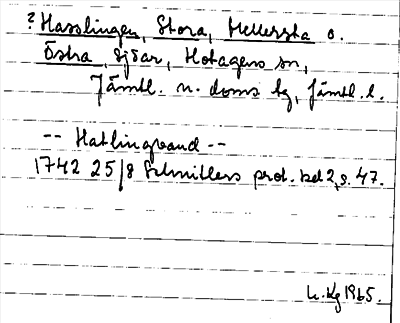 ? Hasslingen, Stora, Mellersta o.
Östra, sjöar, Hotagens sn,
Jämtl. n. doms. tg, Jämtl. l.
-- Hatlingvand --
1742 25/8 Schnitlers prot. bd 2, s. 47.
1965.